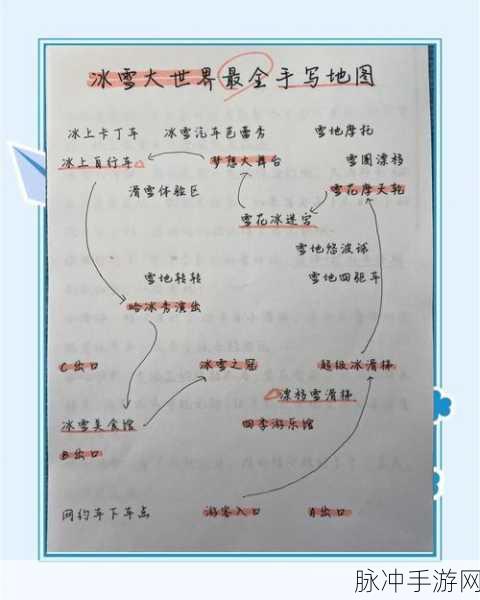 冰雪大世界最全手写地图
冰上卡丁车 冰雪汽车芭蕾秀 雪地摩托
冰上自行车 梦想大舞台 雪圈漂移
滑雪体验区 雪花摩天轮
雪花冰迷宫
雪地悠波球
雪地转转 雪地四驱车
哈冰秀演出
C出口 冰雪之冠 超级冰滑梯
漂移雪滑梯
冰雪美食馆 四季游乐馆
B出口
网约车下车点 游客入口 A出口
脉冲手游网